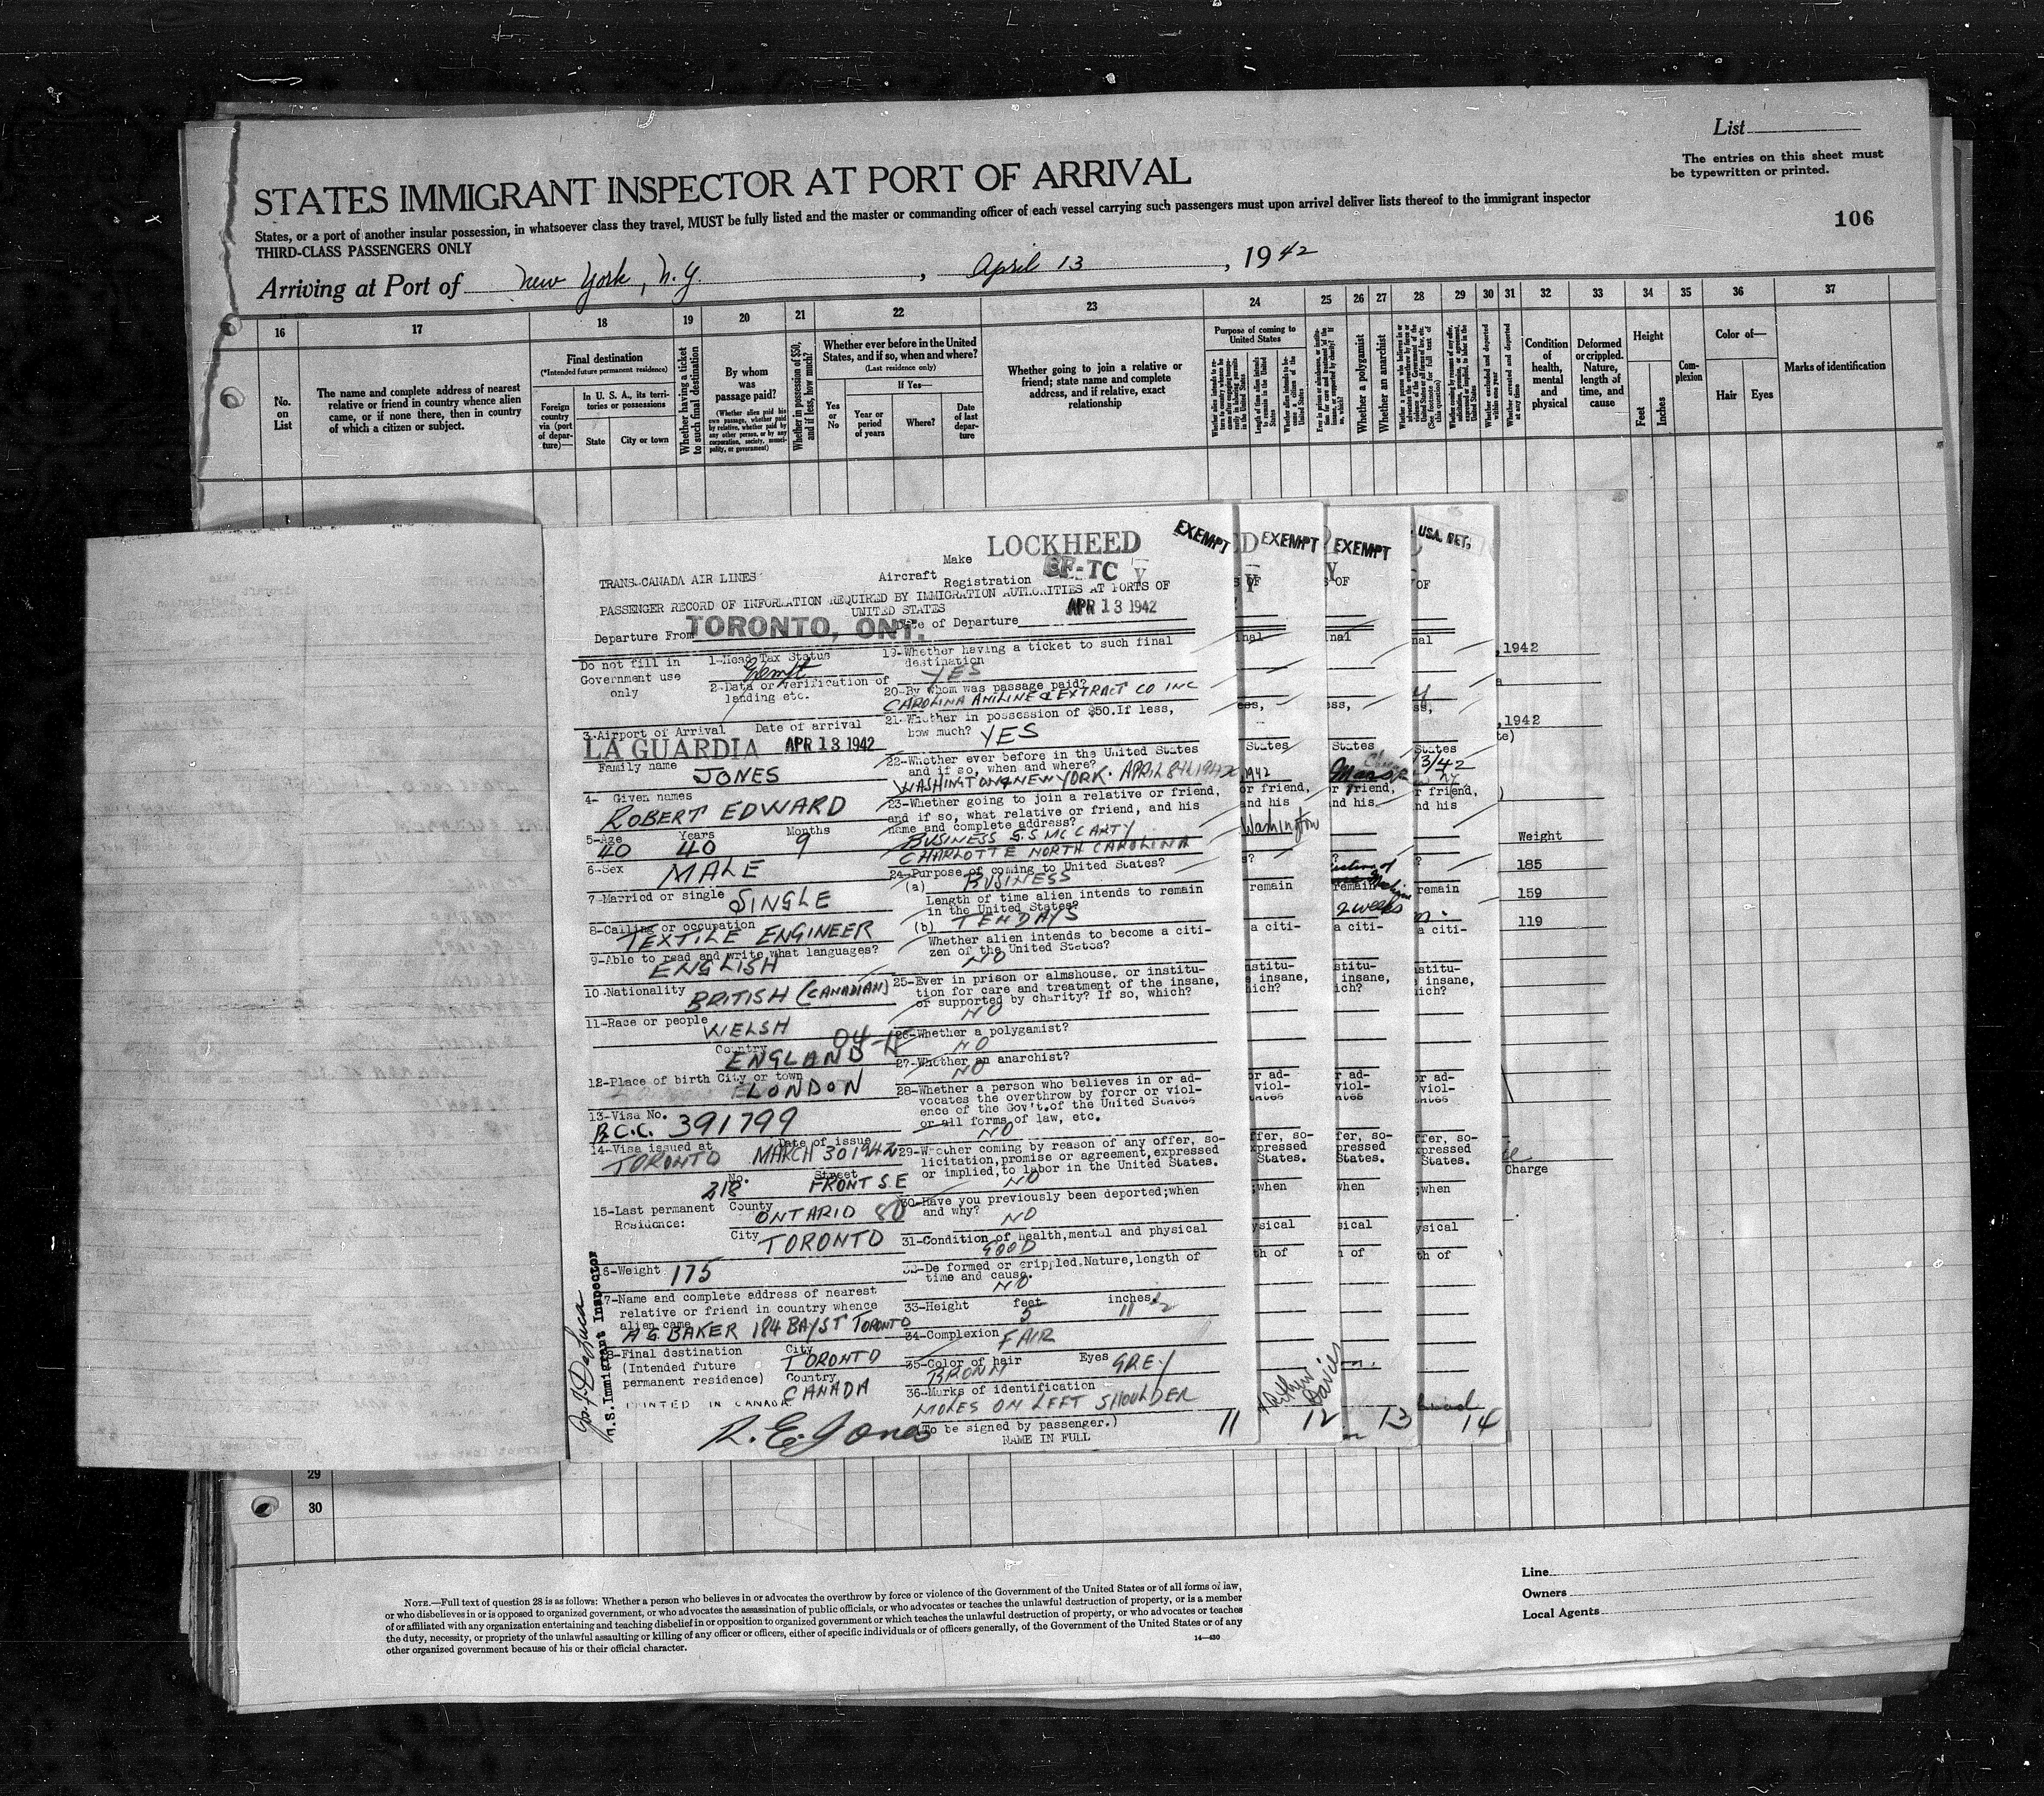 List
The entries on this sheet must
be typewritten or printed.
STATES IMMIGRANT INSPECTOR AT PORT OF ARRIVAL
States, or a port of another insular possession, in whatsoever class they travel, MUST be fully listed and the master or commanding officer of each vessel carrying such passengers must upon arrival deliver lists thereof to the immigrant inspector
THIRD-CLASS PASSENGERS ONLY
106
Arriving at Port of New York, N.Y., April 13, 1942
16 17 18 19 20 21 22 23 24 25 26 27 28 29 30 31 32 33 34 35 36 37
No. on List
The name and complete address of nearest
relative or friend in country whence alien
came, or if none there, then in country
of which a citizen or subject.
Final destination
(*Intended future permanent residence)
Foreign country via (port of departure)—
In U. S. A., its territories or possessions
State
City or town
Whether having a ticket to such final destination
By whom was passage paid?
(Whether alien paid his own passage, whether paid by relative, whether paid by any other person, or by any corporation, society, municipality, or government)
Whether in possession of $50, and if less, how much?
Whether ever before in the United
States, and if so, when and where?
(Last residence only)
If Yes—
Yes or No
Year or period of years
Where?
Date of last departure
Whether going to join a relative or
friend; state name and complete
address, and if relative, exact
relationship
Purpose of coming to
United States
Whether a polygamist
Whether an anarchist
Whether arrested and deported at any time
Condition of health, mental and physical
Deformed or crippled. Nature, length of time, and cause
Height
Feet
Inches
Complexion
Color of—
Hair
Eyes
Marks of identification
TRANS-CANADA AIR LINES
Make LOCKHEED
Aircraft
Registration CF-TC Y
EXEMPT
EXEMPT
EXEMPT
USA. RET.
PASSENGER RECORD OF INFORMATION REQUIRED BY IMMIGRATION AUTHORITIES AT PORTS OF
UNITED STATES
APR 13 1942
Departure From TORONTO, ONT. Date of Departure
Do not fill in
Government use
only
1-Head Tax Status
Exempt
2-Data or verification of
landing etc.
3-Airport of Arrival Date of arrival
LA GUARDIA APR 13 1942
Family name JONES
4- Given names
ROBERT EDWARD
5-Age Years Months
40 40 9
6-Sex MALE
7-Married or single SINGLE
8-Calling or occupation
TEXTILE ENGINEER
9-Able to read and write what languages?
ENGLISH
10-Nationality BRITISH (CANADIAN)
11-Race or people WELSH
Country
ENGLAND
12-Place of birth City or town
LONDON
13-Visa No.
R.C.C. 391799
14-Visa issued at Date of issue
TORONTO MARCH 30 1942
No. Street
218 FRONT S.E
15-Last permanent County
Residence: ONTARIO 80
City TORONTO
16-Weight 175
17-Name and complete address of nearest
relative or friend in country whence
alien came
A G BAKER 184 BAY ST TORONTO
18-Final destination City TORONTO
(Intended future
permanent residence) Country CANADA
PRINTED IN CANADA
19-Whether having a ticket to such final
destination
YES
20-By whom was passage paid?
CAROLINA ANILINE & EXTRACT CO INC
21-Whether in possession of $50.If less,
how much? YES
22-Whether ever before in the United States
and if so, when and where?
WASHINGTON & NEW YORK. APRIL 8th 1942
23-Whether going to join a relative or friend,
and if so, what relative or friend, and his
name and complete address?
BUSINESS G.S MCCARTY
CHARLOTTE NORTH CAROLINA
24-Purpose of coming to United States?
(a) BUSINESS
Length of time alien intends to remain
in the United States?
(b) TEN DAYS
Whether alien intends to become a citi-
zen of the United States?
NO
25-Ever in prison or almshouse, or institu-
tion for care and treatment of the insane,
or supported by charity? If so, which?
NO
26-Whether a polygamist?
NO
27-Whether an anarchist?
NO
28-Whether a person who believes in or ad-
vocates the overthrow by forcr or viol-
ence of the Gov't.of the United States
or all forms of law, etc.
NO
29-Whether coming by reason of any offer, so-
licitation,promise or agreement,expressed
or implied,to labor in the United States.
NO
30-Have you previously been deported;when
and why?
NO
31-Condition of health,mental and physical
GOOD
32-De formed or crippled.Nature,length of
time and cause.
NO
33-Height feet inches
5 11 1/2
34-Complexion FAIR
35-Color of hair Eyes GREY
BROWN
36-Marks of identification
MOLES ON LEFT SHOULDER
(To be signed by passenger.)
NAME IN FULL
R. E. Jones
U.S. Immigrant Inspector
11
12
13
14
1942
Washington
2 weeks
13/42
,1942
,1942
Weight
185
159
119
Charge
29
30
Line
Owners
Local Agents
NOTE.—Full text of question 28 is as follows: Whether a person who believes in or advocates the overthrow by force or violence of the Government of the United States or of all forms of law,
or who disbelieves in or is opposed to organized government, or who advocates the assassination of public officials, or who advocates or teaches the unlawful destruction of property, or is a member
of or affiliated with any organization entertaining and teaching disbelief in or opposition to organized government or which teaches the unlawful destruction of property, or who advocates or teaches
the duty, necessity, or propriety of the unlawful assaulting or killing of any officer or officers, either of specific individuals or of officers generally, of the Government of the United States or of any
other organized government because of his or their official character.
14—430